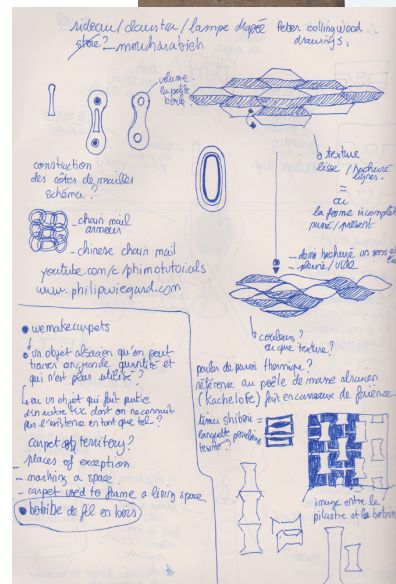 rideau/claustra/lampe d'après Peter Collingwood
drawings:
store? - moucharabieh
volume.
la petite
texture
lisse / hachuré
lignes.
=
ou
la forme incomplète
construction
des côtes de mailles
schéma?
- chain mail
armour
- chinese chain mail
youtube.com/c/phimotutorials
www.philipwiegard.com
- demi hachuré un sens et
- plein / vide
couleurs?
ou que texture?
• wemakecarpets
un objet alsacien qu'on peut
trouver en grande quantité et
qui n'est plus utilisé?
ou un objet qui fait partie
d'un autre dont on ne connait
pas l'existence en tant que tel?
carpet of territory?
- places of exception
- marking a space
- carpet used to frame a living space
• bobine de fil en bois
parler de paroi thermique?
référence au poêle de masse alsacien
(Kachelofe) fait en carreaux de faïence.
tissu shibori =
languette
image entre le
pilastre et la bobine